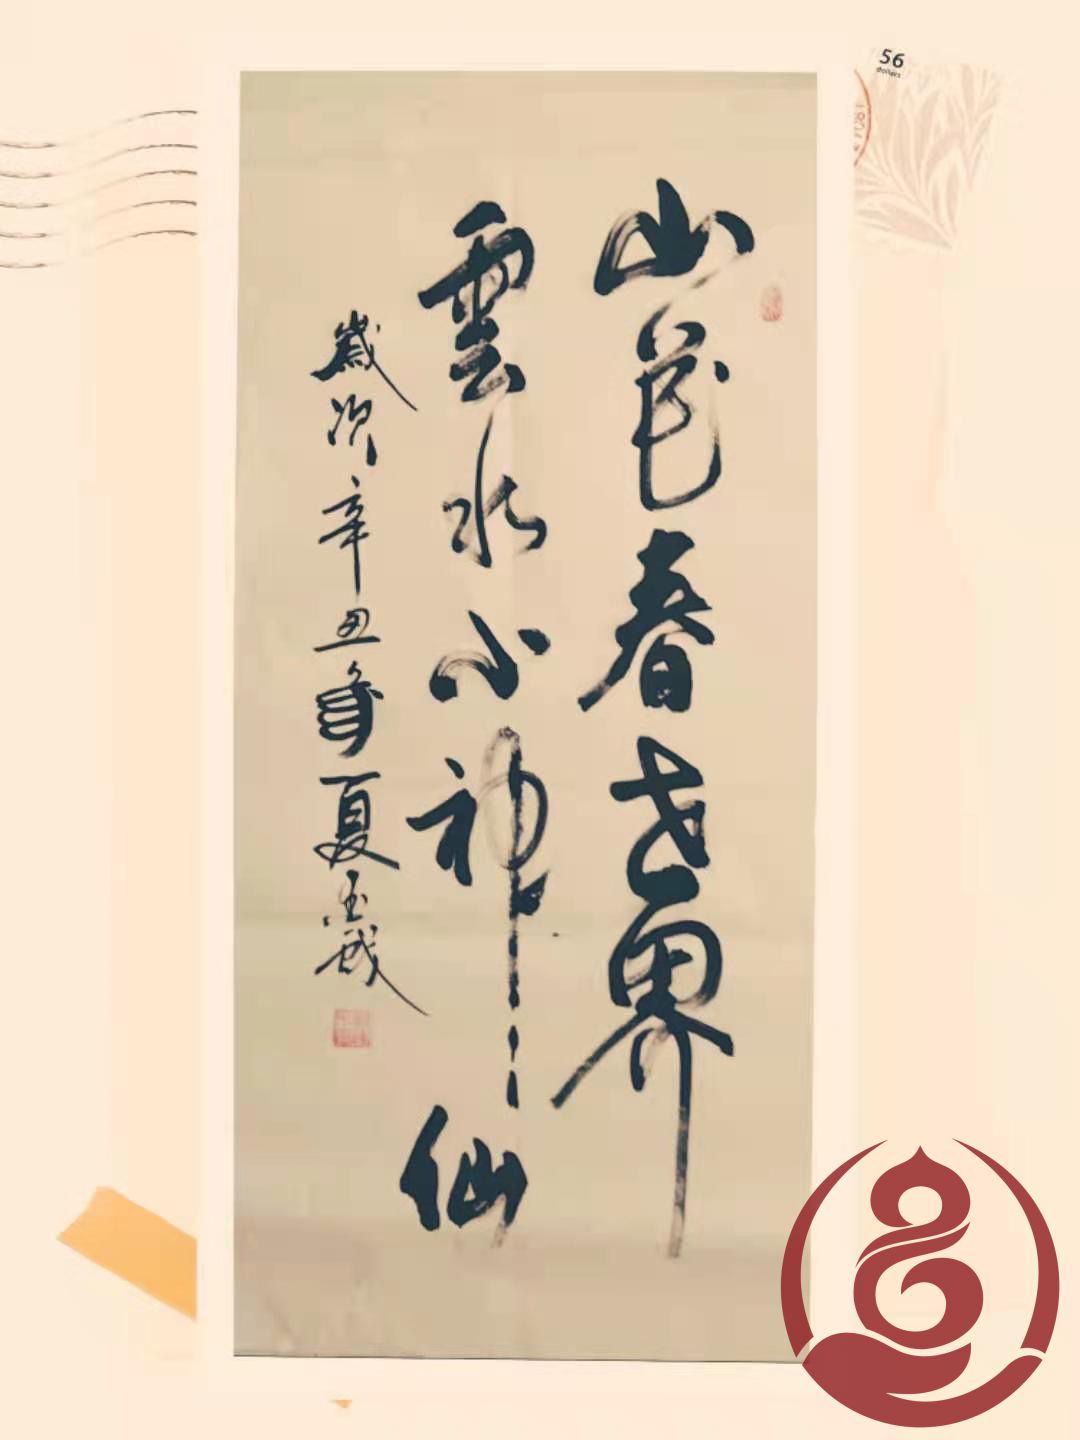 山花春世界
雲水小神仙
歲次辛丑年夏
56
dollars